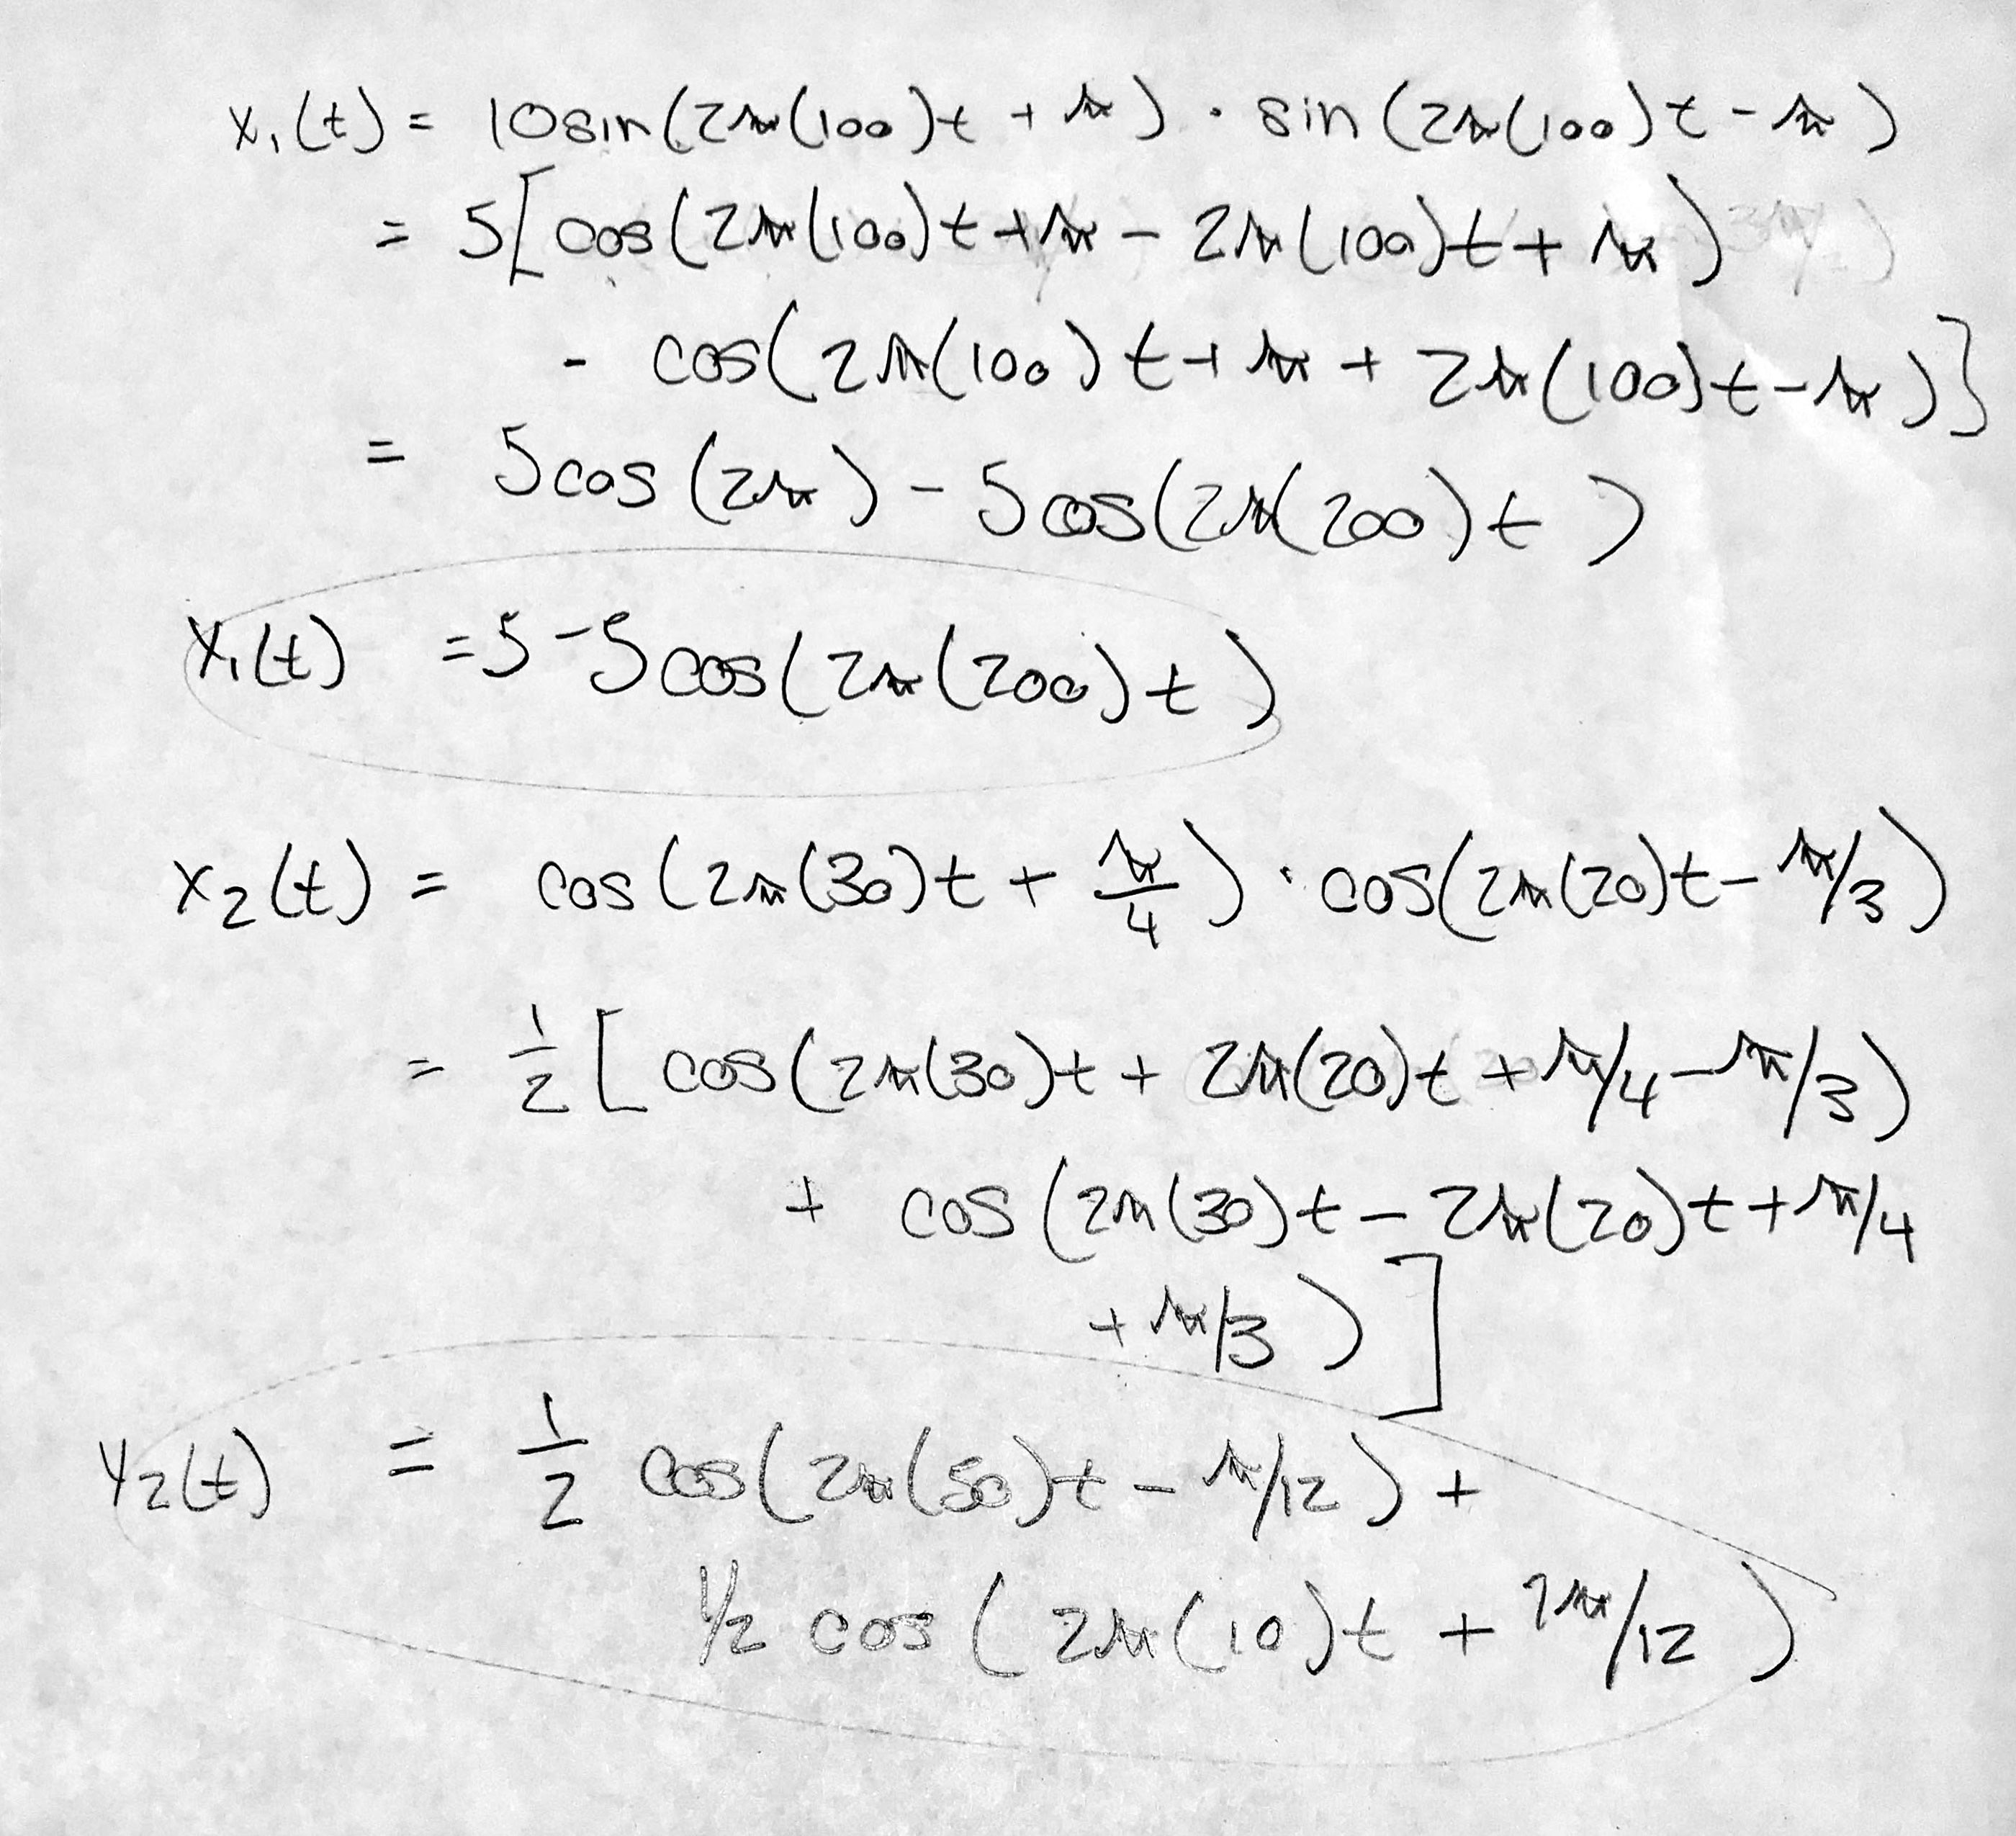 x₁(t) = 10sin(2π(100)t + π) · sin(2π(100)t - π)
= 5[cos(2π(100)t + π - 2π(100)t + π)
- cos(2π(100)t + π + 2π(100)t - π)]
= 5cos(2π) - 5cos(2π(200)t)
x₁(t) = 5 - 5cos(2π(200)t)
x₂(t) = cos(2π(30)t + π/4) · cos(2π(20)t - π/3)
= 1/2 [cos(2π(30)t + 2π(20)t + π/4 - π/3)
+ cos(2π(30)t - 2π(20)t + π/4
+ π/3)]
y₂(t) = 1/2 cos(2π(50)t - π/12) +
1/2 cos(2π(10)t + 7π/12)